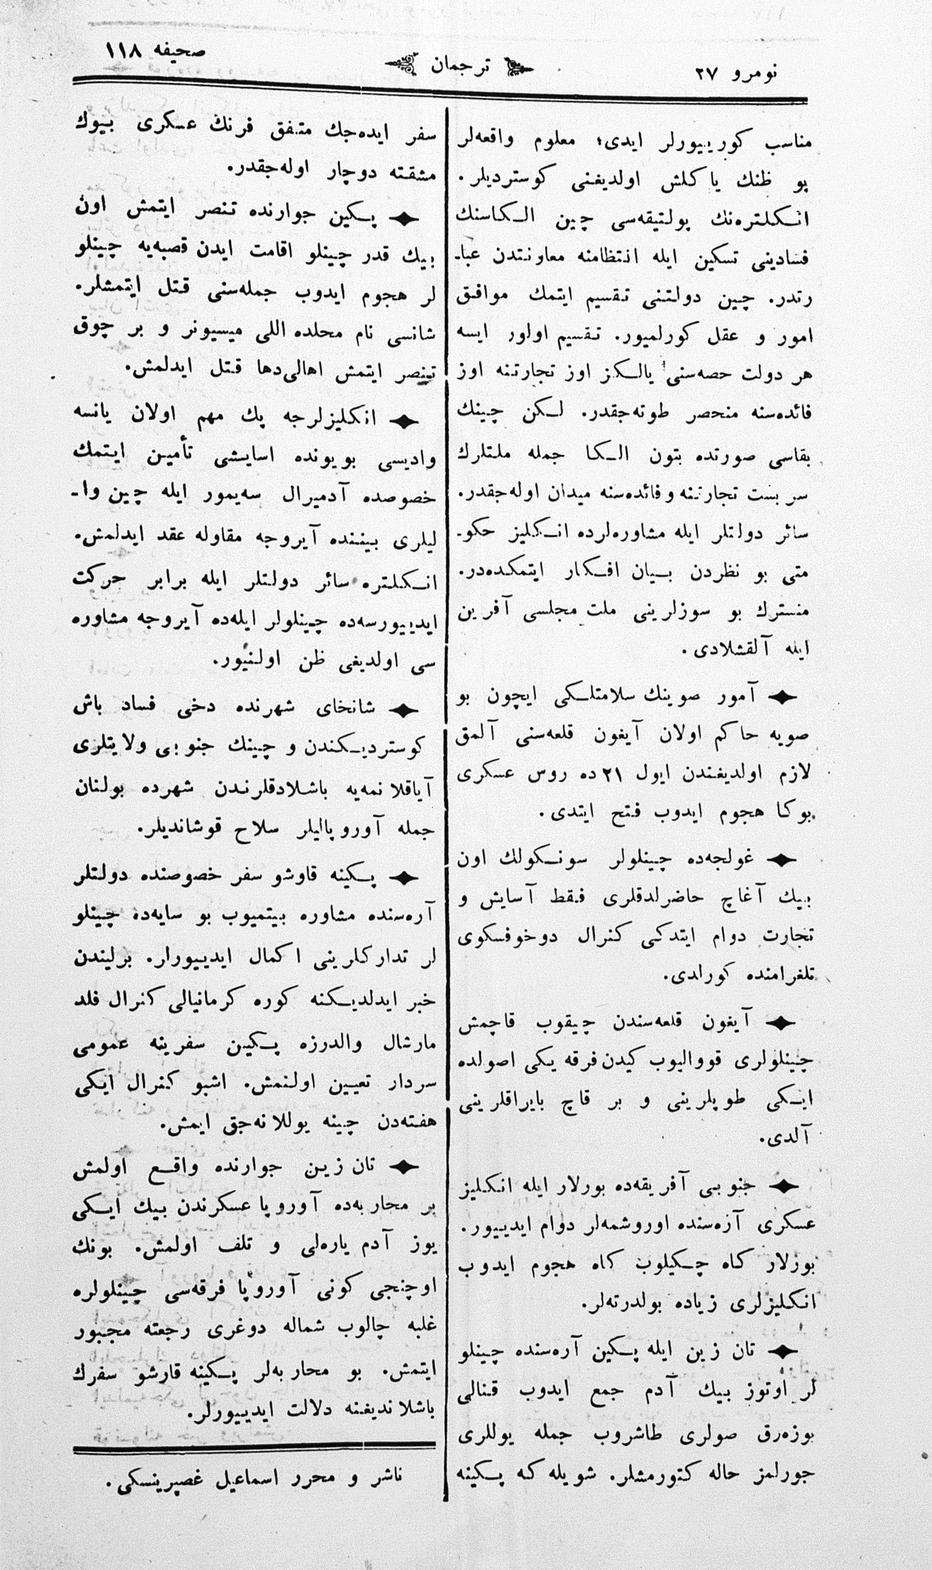 نومرو ٢٧
ترجمان
صحیفه ١١٨
مناسب کورییورلر ایدی؛ معلوم واقعه‌لر
بو ظنك یاکلش اولدیغنی کوستردیلر.
انکلتره‌نك پولتیقه‌سی چین الکاسنك
فسادینی تسکین ایله انتظامنه معاونتدن عبا-
رتدر. چین دولتنی تقسیم ایتمك موافق
امور و عقل کورلمیور. تقسیم اولور ایسه
هر دولت حصه‌سنی یالکز اوز تجارتنه اوز
فائده‌سنه منحصر طوته‌جقدر. لکن چینك
بقاسی صورتده بتون الکا جمله ملتلرك
سربست تجارتنه و فائده‌سنه میدان اوله‌جقدر.
سائر دولتلر ایله مشاوره‌لرده انکلیز حکو-
متی بو نظردن بیان افکار ایتمکده‌در.
منسترك بو سوزلرینی ملت مجلسی آفرین
ایله آلقشلادی.
آمور صوینك سلامتلکی ایچون بو
صویه حاکم اولان آیغون قلعه‌سنی آلمق
لازم اولدیغندن ایول ٢١ ده روس عسکری
بوکا هجوم ایدوب فتح ایتدی.
غولجه‌ده چینلولر سونکولك اون
بیك آغاچ حاضرلدقلری فقط آسایش و
تجارت دوام ایتدکی کنرال دوخوفسکوی
تلغرامنده کورلدی.
آیغون قلعه‌سندن چیقوب قاچمش
چینلولری قووالیوب کیدن فرقه یکی اصولده
ایکی طوپلرینی و بر قاچ بایراقلرینی
آلدی.
جنوبی آفریقه‌ده بورلار ایله انکلیز
عسکری آره‌سنده اوروشمه‌لر دوام ایدییور.
بوزلار کاه چکیلوب کاه هجوم ایدوب
انکلیزلری زیاده بولدرته‌لر.
تان زین ایله پکین آره‌سنده چینلو
لر اوتوز بیك آدم جمع ایدوب قنالی
بوزه‌رق صولری طاشروب جمله یوللری
جورلمز حاله کتورمشلر. شویله که پکینه
سفر ایده‌جك متفق فرنك عسکری بیوك
مشقته دوچار اوله‌جقدر.
پکین جوارنده تنصر ایتمش اون
بیك قدر چینلو اقامت ایدن قصبه‌یه چینلو
لر هجوم ایدوب جمله‌سنی قتل ایتمشلر.
شانسی نام محلده اللی میسیونر و بر چوق
تنصر ایتمش اهالی‌دها قتل ایدلمش.
انکلیزلرجه پك مهم اولان یانسه
وادیسی بویونده اسایشی تأمین ایتمك
خصوصده آدمیرال سه‌یمور ایله چین وا-
لیلری بیننده آیروجه مقاوله عقد ایدلمش.
انکلتره سائر دولتلر ایله برابر حرکت
ایدییورسه‌ده چینلولر ایله‌ده آیروجه مشاوره
سی اولدیغی ظن اولنیور.
شانخای شهرنده دخی فساد باش
کوستردیکندن و چینك جنوبی ولایتلری
آیاقلانمه‌یه باشلادقلرندن شهرده بولنان
جمله آوروپالیلر سلاح قوشاندیلر.
پکینه قاوشو سفر خصوصنده دولتلر
آره‌سنده مشاوره بیتمیوب بو سایه‌ده چینلو
لر تدارکلرینی اکمال ایدییورار. برلیندن
خبر ایدلدیکنه کوره کرمانیالی کنرال فلد
مارشال والدرزه پکین سفرینه عمومی
سردار تعیین اولنمش. اشبو کنرال ایکی
هفته‌دن چینه یوللانه‌جق ایمش.
تان زین جوارنده واقع اولمش
بر محاربه‌ده آوروپا عسکرندن بیك ایکی
یوز آدم یاره‌لی و تلف اولمش. بونك
اوچنجی کونی آوروپا فرقه‌سی چینلولره
غلبه چالوب شماله دوغری رجعته مجبور
ایتمش. بو محاربه‌لر پکینه قارشو سفرك
باشلاندیغنه دلالت ایدییورلر.
ناشر و محرر اسماعیل غصپرینسکی.